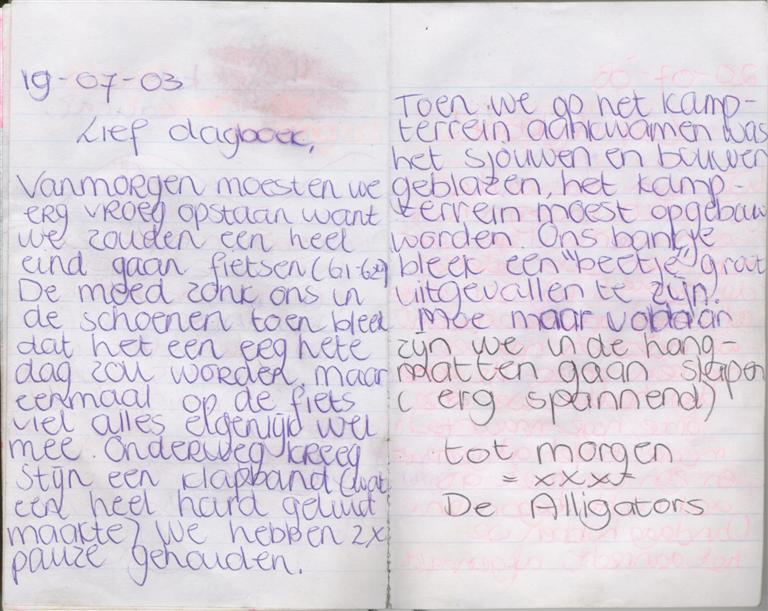 19-07-03
Lief dagboek,
Vanmorgen moesten we
erg vroeg opstaan want
we zouden een heel
eind gaan fietsen (61-62)
De moed zonk ons in
de schoenen toen bleek
dat het een eeg hete
dag zou worden, maar
eenmaal op de fiets
viel alles eigenijd wel
mee. Onderweg kreeg
Stijn een klapband (wat
een heel hard geluid
maakte) We hebben 2x
pauze gehouden.
Toen we op het kamp-
terrein aankwamen was
het sjouwen en bouwen
geblazen, het kamp-
terrein moest opgebouw
worden. Ons bankje
bleek een "beetje" groot
uitgevallen te zijn.
Moe maar voldaan
zijn we in de hang-
matten gaan slapen
(erg spannend)
tot morgen
= xxxx
De Alligators